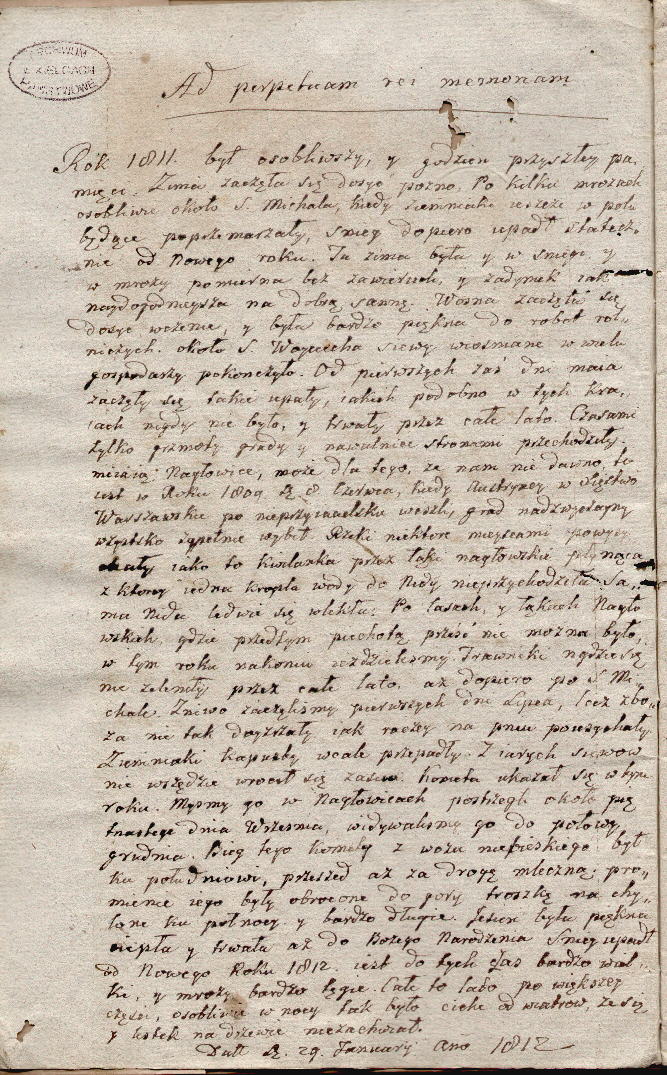 ARCHIWUM
W KIELCACH
PAŃSTWOWE
Ad perpetuam rei memoriam
Rok 1811. był osobliwszy, y godzien przyszłey pa„
mięci. Zima zaczęła się dosyć pozno. Po kilku mrozach
osobliwie około S. Michała, kiedy ziemniaki ieszcze w polu
będące poprzemarzały, snieg dopiero upadł statecz„
nie od Nowego roku. Ta zima była y w sniegi, y
w mrozy pomierna bez zawieruch, y zadymek iak
naydogodnieysza na dobrą sannę. Wiosna zaczęła się
dosyć wcżesnie, y była bardzo piękna do robot rol„
niczych. około S. Woyciecha siewy wiosniane w wielu
gospodarzy pokończyło. Od pierwszych zaś dni maia
zaczęły się takie upały, iakich podobno w tych kra„
iach nigdy nie było, y trwały przez całe lato. Czasami
tylko grzmoty grady y nawalnice stronami przechodziły
miiaiąc Nagłowice, może dla tego, że nam nie dawno, to
iest w Roku 1809 d. 8. Czerwca, kiedy Austryacy w Xięstwo
Warszawskie po nieprzyiacielsku weszli, grad nadzwyczayny
wszystko zupełnie wybił. Rzeki niektore mieyscami powysy„
chały iako to Kwilanka przez łąki nagłowskie płynąca
z ktorey iedna kropla wody do Nidy nieprzychodziła. Sa„
ma Nida ledwie się wlekła. Po lasach, y łąkach Nagło
wskich, gdzie przedtym piechotą przeiść nie można było,
w tym roku nakoniu iezdzielismy. Trawniki nigdzie się
nie zieleniły przez całe lato, aż dopiero po S. Mi„
chale. Zniwo zaczęlismy pierwszych dni Lipca, lecz zbo„
za nie tak doyrzały iak raczey na pniu pousychały.
Ziemniaki kapusty wcale przepadły. Z iarych siewow
nie wszędzie wrocił się zasiew. Kometa ukazał się w tym
roku. Mysmy go w Nagłowicach postrzegli około pię
tnastego dnia Wrzesnia, widywalismy go do połowy
grudnia. Bieg tego komety z wozu niebieskiego był
ku południowi, przeszed aż za drogę mleczną; pro„
mienie iego były obrocone do gory troszkę na chy„
lone ku połnocy y bardzo długie. Jesień była piękna
ciepła y trwała aż do Bożego Narodzenia Snieg upadł
od Nowego Roku 1812. iest do tych czas bardzo wiel„
ki, y mrozy bardzo tęgie. Całe to lato po większey
części, osobliwie w nocy tak było ciche od wiatrow, że się
y listek na drzewie niezachwiał.
Datt d. 29. January Ano 1812